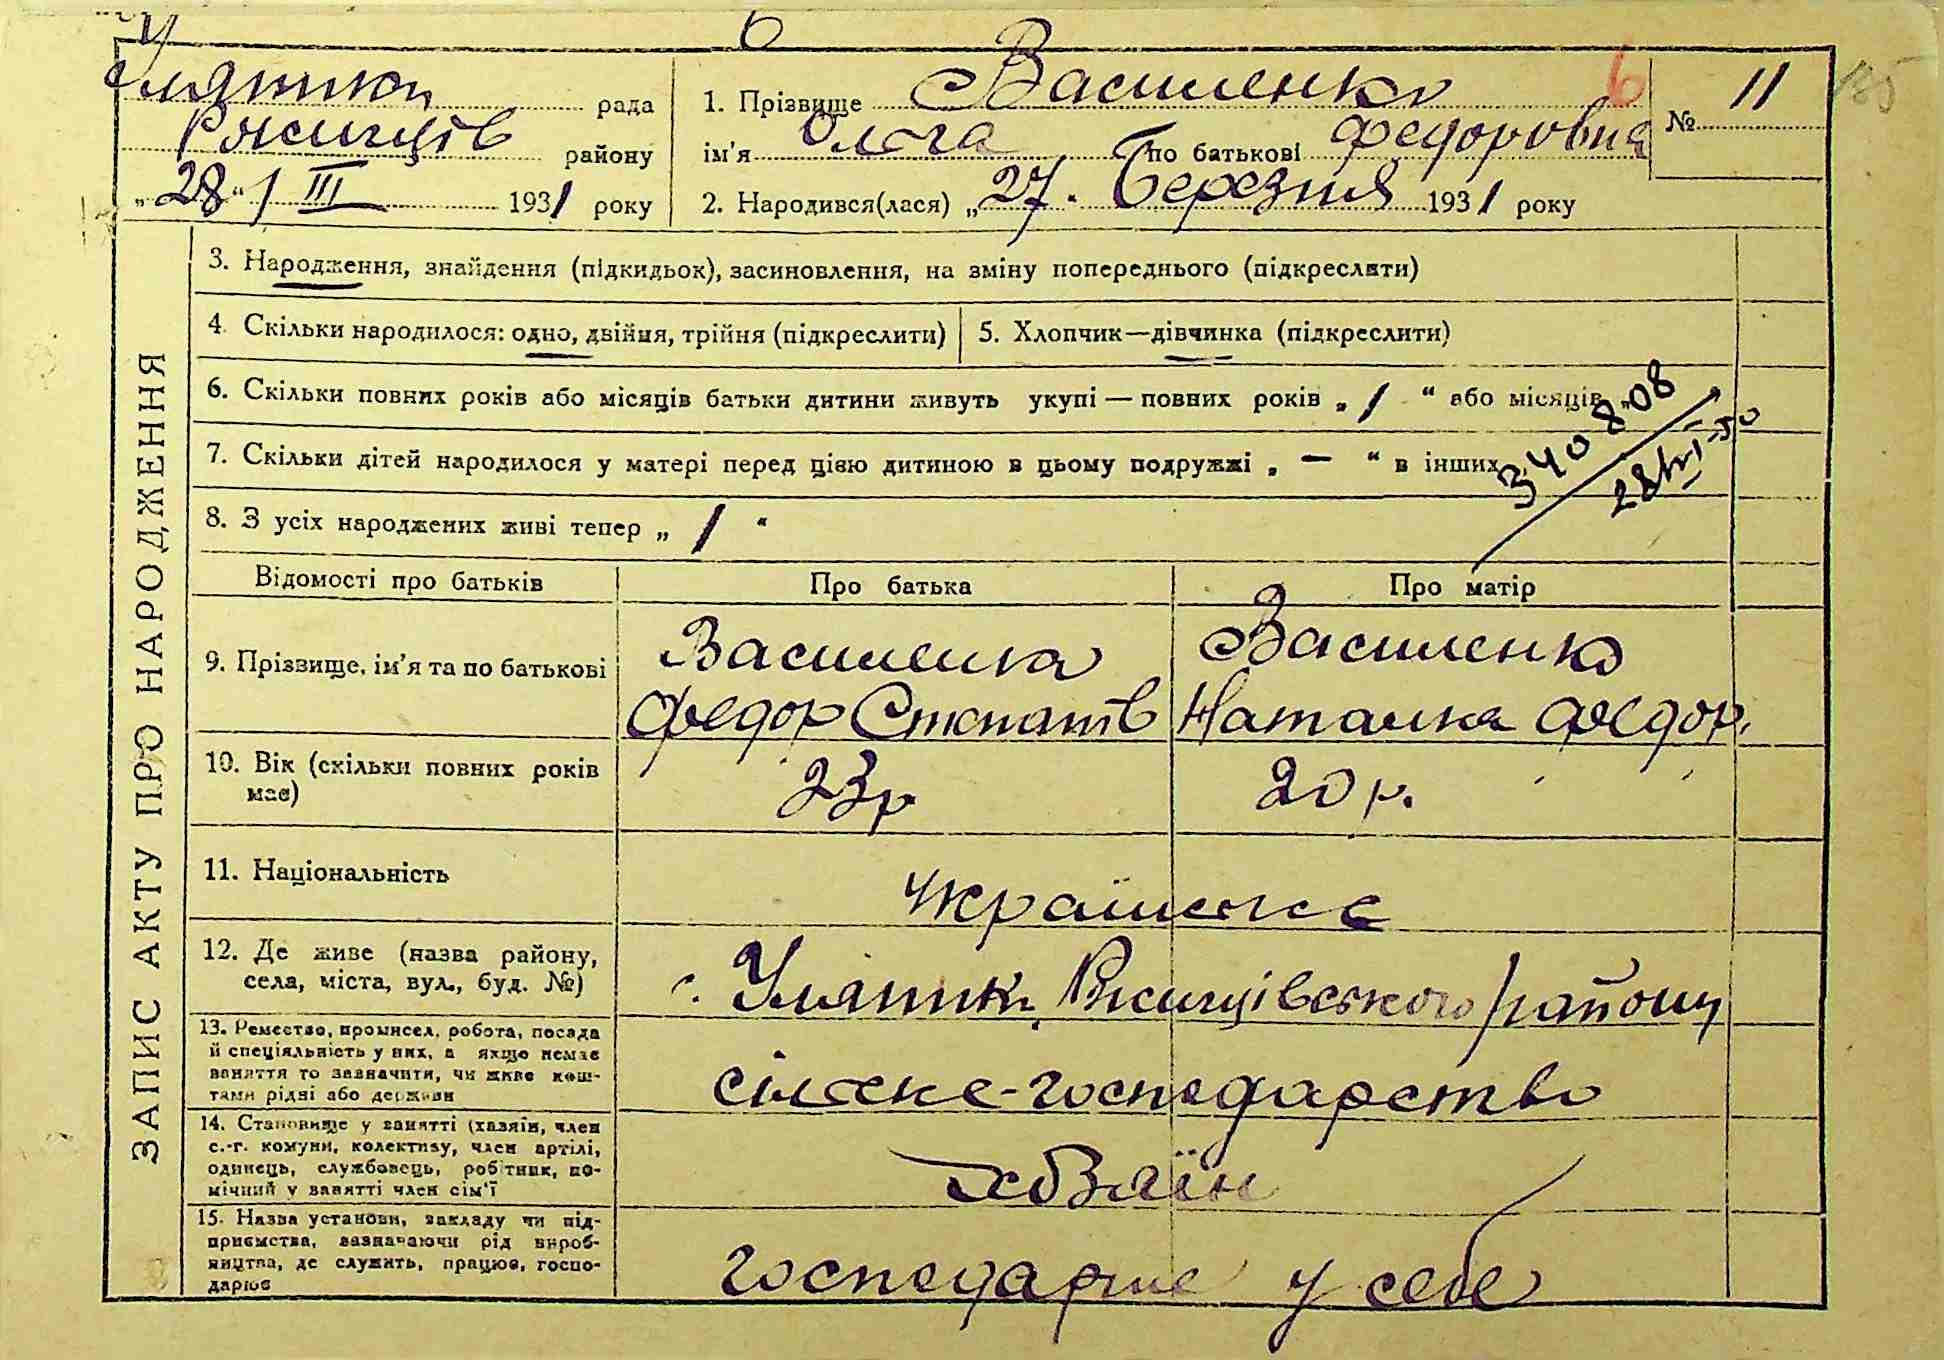 Улятики рада
Ржищів району
„28“ / III 1931 року
1. Прізвище Василенко
ім'я Ольга по батькові Федоровна
2. Народився(лася) „27. Березня 1931 року
№ 11
6
185
ЗАПИС АКТУ ПРО НАРОДЖЕННЯ
3. Народження, знайдення (підкидьок), засиновлення, на зміну попереднього (підкреслити)
4. Скільки народилося: одно, двійня, трійня (підкреслити)
5. Хлопчик—дівчинка (підкреслити)
6. Скільки повних років або місяців батьки дитини живуть укупі — повних років „ 1 “ або місяців „
7. Скільки дітей народилося у матері перед цією дитиною в цьому подружжі „ — “ в інших
340808
8. З усіх народжених живі тепер „ 1 “
Відомості про батьків Про батька Про матір
9. Прізвище, ім'я та по батькові
Василенко
Федор Степанів
Василенко
Наталка Федор.
10. Вік (скільки повних років
має)
23р
20 р.
11. Національність
Українське
12. Де живе (назва району,
села, міста, вул., буд. №)
с. Уляники, Ржищівського району
13. Ремество, промисел, робота, посада
й спеціяльність у них, а якщо немає
заняття то зазначити, чи живе кош-
тами рідні або держави
сільске-господарство
14. Становище у занятті (хазяїн, член
с.-г. комуни, колективу, член артілі,
одинець, службовець, робітник, по-
мічний у занятті член сім'ї
хазяїн
15. Назва установи, закладу чи під-
приємства, зазначаючи рід вироб-
ництва, де служить, працює, госпо-
дарює
господарює у себе